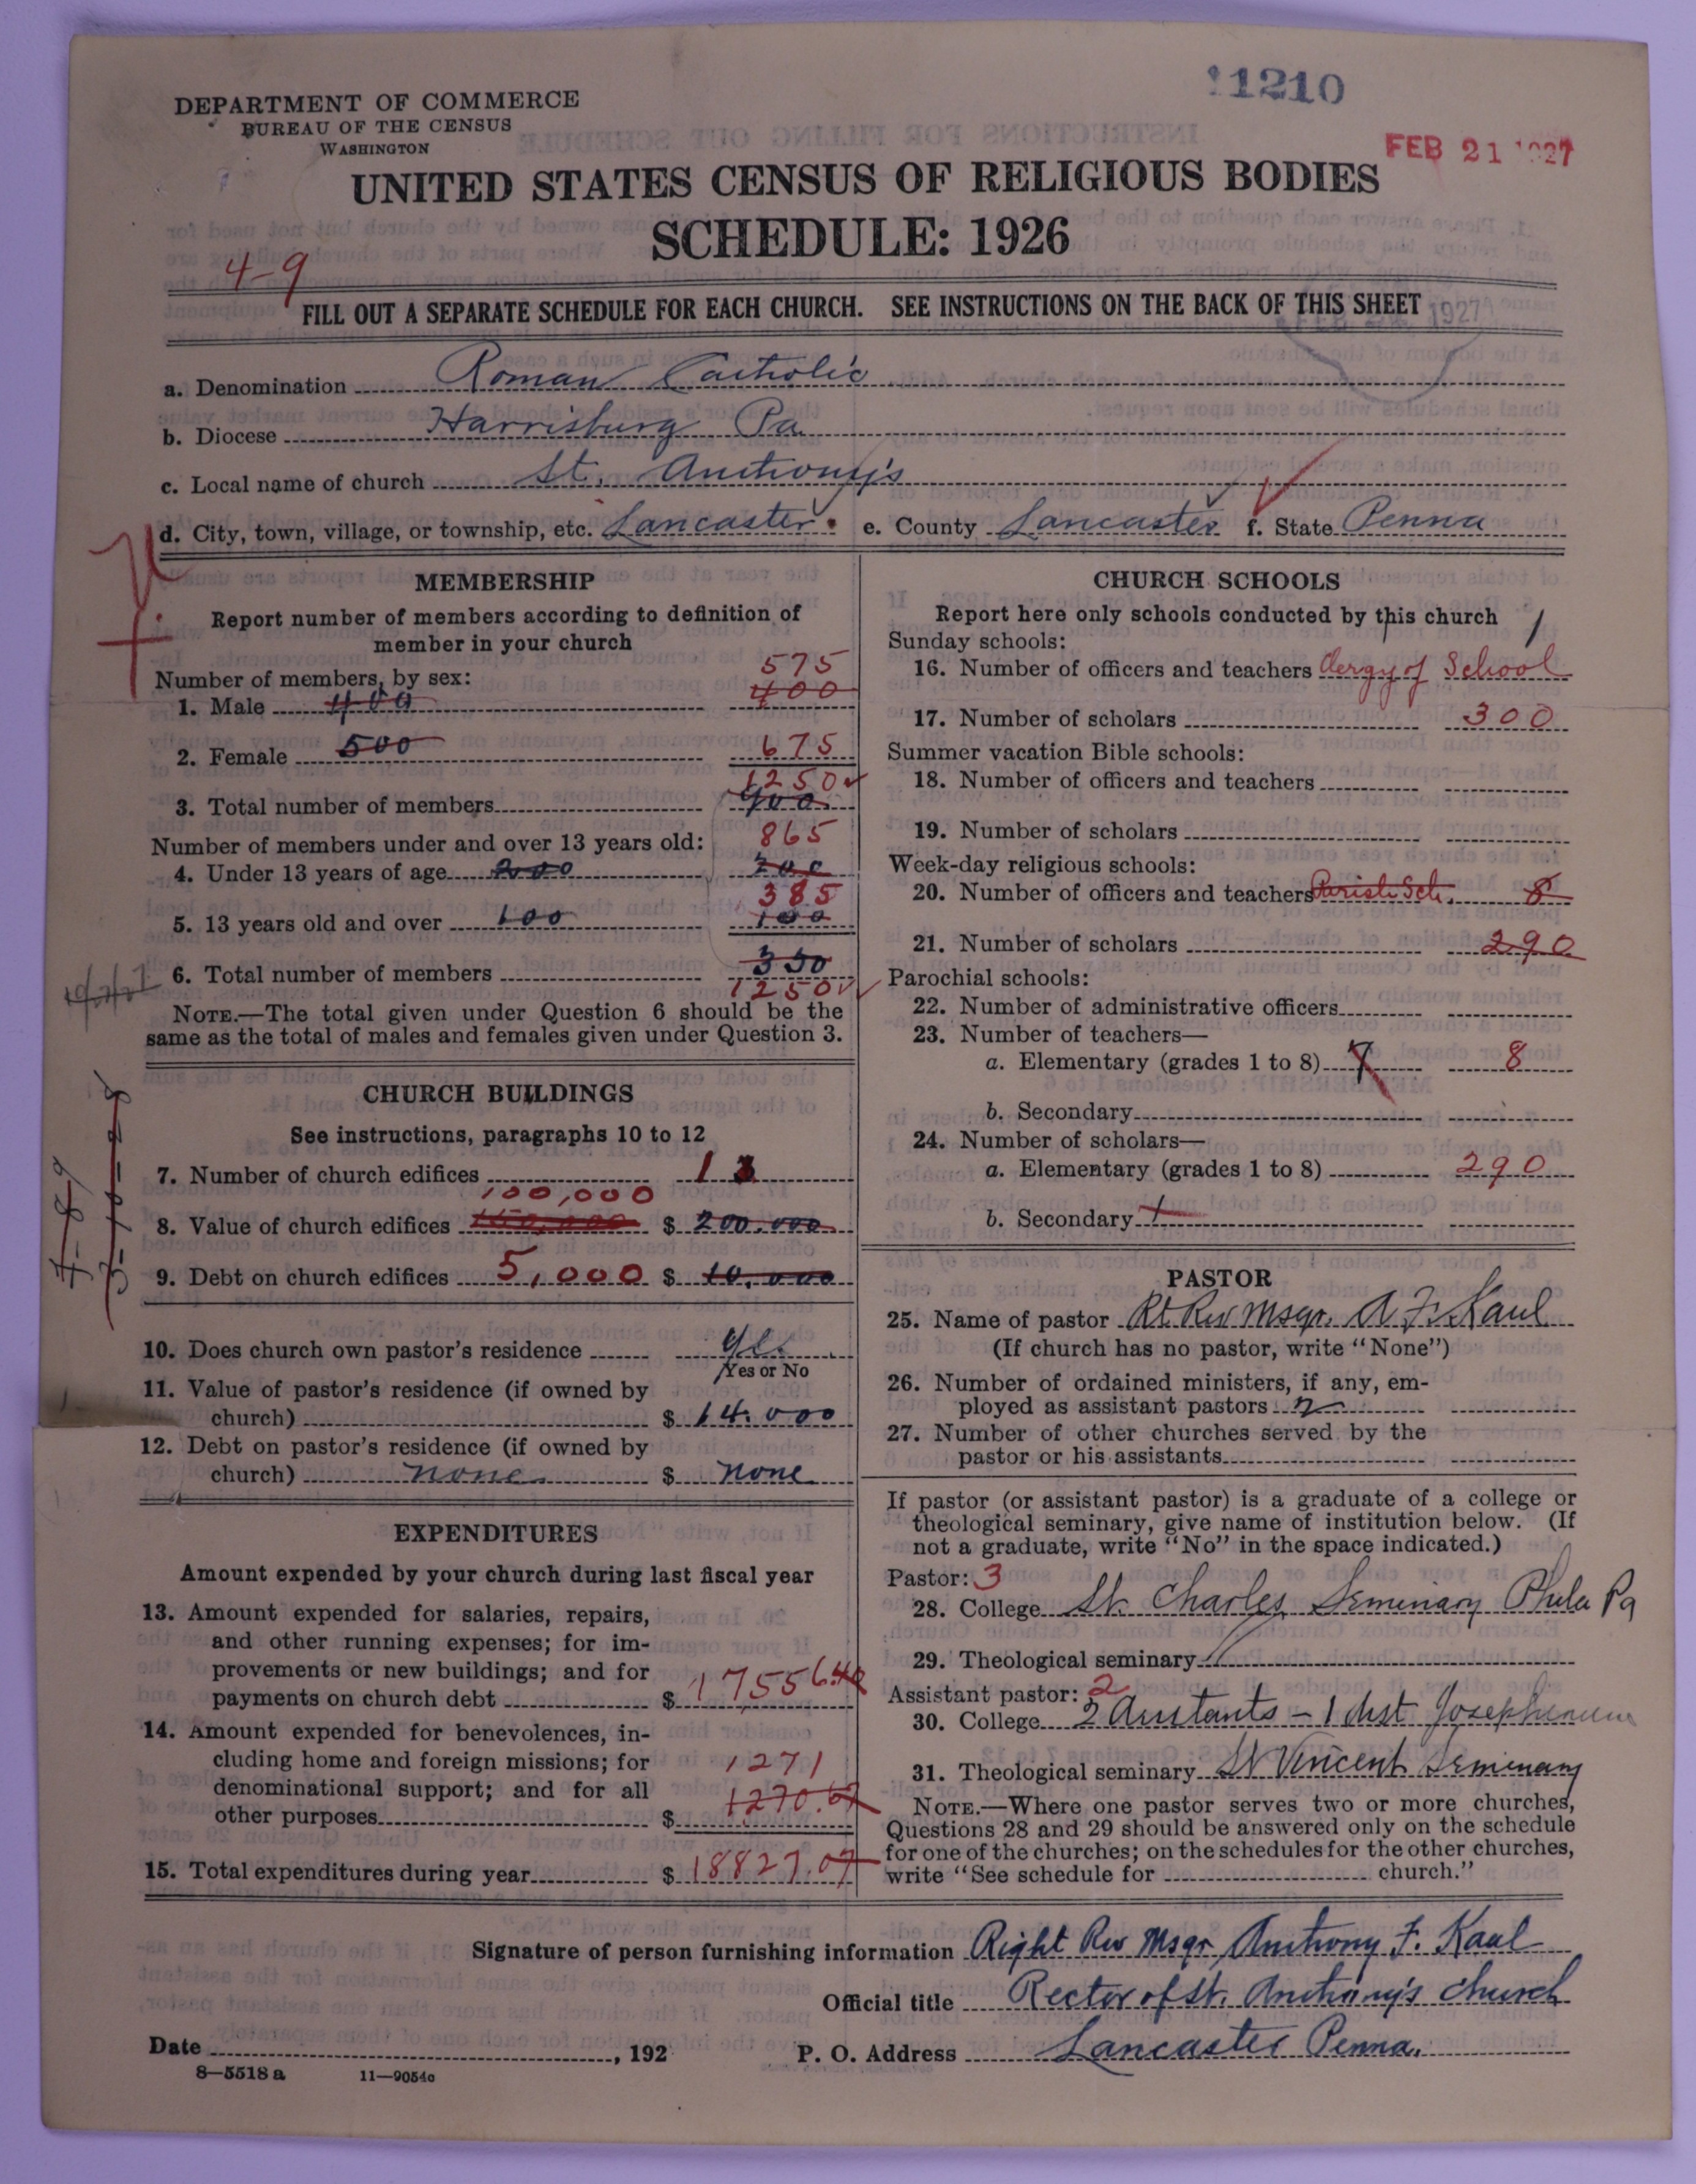 11210
DEPARTMENT OF COMMERCE
BUREAU OF THE CENSUS
WASHINGTON
FEB 21 1927
UNITED STATES CENSUS OF RELIGIOUS BODIES
SCHEDULE: 1926
4-9
FILL OUT A SEPARATE SCHEDULE FOR EACH CHURCH. SEE INSTRUCTIONS ON THE BACK OF THIS SHEET
a. Denomination Roman Catholic
b. Diocese Harrisburg Pa
c. Local name of church St. Anthony's
d. City, town, village, or township, etc. Lancaster e. County Lancaster f. State Penna
MEMBERSHIP
Report number of members according to definition of
member in your church
Number of members, by sex:
575
1. Male 400 400
2. Female 500 675
1250
3. Total number of members 900
Number of members under and over 13 years old: 865
4. Under 13 years of age 200 200
385
5. 13 years old and over 100 100
6. Total number of members 350
1250
NOTE.—The total given under Question 6 should be the
same as the total of males and females given under Question 3.
CHURCH BUILDINGS
See instructions, paragraphs 10 to 12
7. Number of church edifices 1
100,000
8. Value of church edifices 150,000 $ 200.000
9. Debt on church edifices 5,000 $ 10,000
10. Does church own pastor's residence yes
Yes or No
11. Value of pastor's residence (if owned by
church) $ 14.000
12. Debt on pastor's residence (if owned by
church) none $ none
EXPENDITURES
Amount expended by your church during last fiscal year
13. Amount expended for salaries, repairs,
and other running expenses; for im-
provements or new buildings; and for
payments on church debt $ 17556.40
14. Amount expended for benevolences, in-
cluding home and foreign missions; for
denominational support; and for all
other purposes $ 1271
1270.67
15. Total expenditures during year $ 18827.07
CHURCH SCHOOLS
Report here only schools conducted by this church
Sunday schools: 1
16. Number of officers and teachers Clergy of School
17. Number of scholars 300
Summer vacation Bible schools:
18. Number of officers and teachers
19. Number of scholars
Week-day religious schools:
20. Number of officers and teachers Parish Sch. 8
21. Number of scholars 290
Parochial schools:
22. Number of administrative officers
23. Number of teachers—
a. Elementary (grades 1 to 8) 7 8
b. Secondary
24. Number of scholars—
a. Elementary (grades 1 to 8) 290
b. Secondary
PASTOR
25. Name of pastor Rt. Rev Msgr. A F. Kaul
(If church has no pastor, write "None")
26. Number of ordained ministers, if any, em-
ployed as assistant pastors 2
27. Number of other churches served by the
pastor or his assistants
If pastor (or assistant pastor) is a graduate of a college or
theological seminary, give name of institution below. (If
not a graduate, write "No" in the space indicated.)
Pastor: 3
28. College St. Charles Seminary Phila Pa
29. Theological seminary
Assistant pastor: 2
30. College 2 Assistants - 1 Josephinum
31. Theological seminary St Vincent Seminary
NOTE.—Where one pastor serves two or more churches,
Questions 28 and 29 should be answered only on the schedule
for one of the churches; on the schedules for the other churches,
write "See schedule for church."
Signature of person furnishing information Right Rev Msgr Anthony F. Kaul
Official title Rector of St. Anthony's Church
Date , 192 P. O. Address Lancaster Penna.
8—5518 a 11—9054c